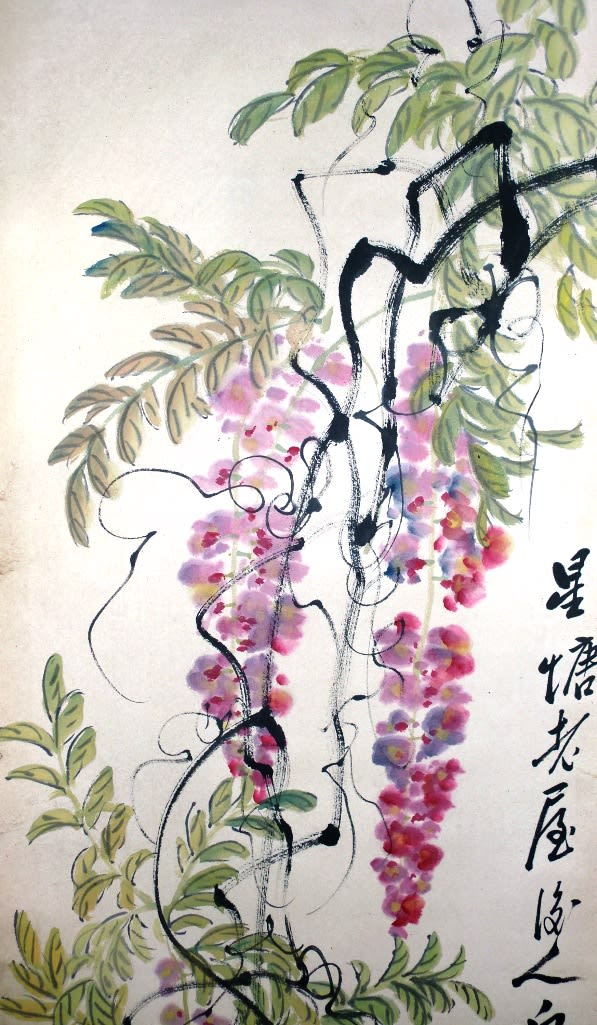 星塘老屋後人白